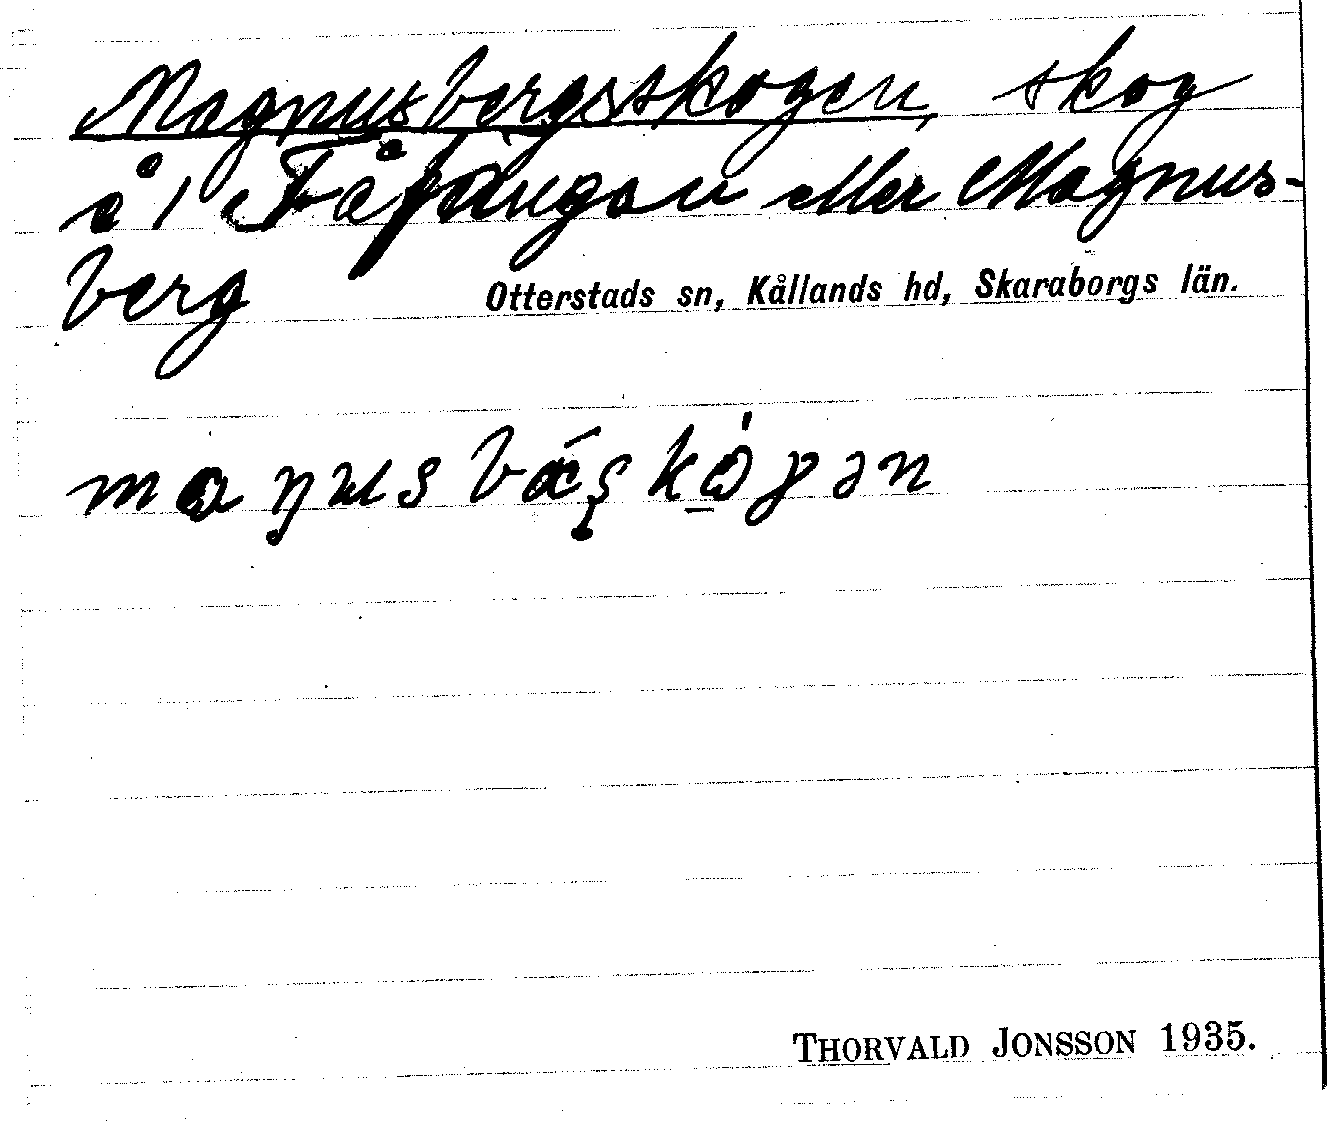 Magnusbergsskogen, skog
å 1 Fåfängan eller Magnus-
berg
Otterstads sn, Kållands hd, Skaraborgs län.
maŋusbǽʂkógən
THORVALD JONSSON 1935.